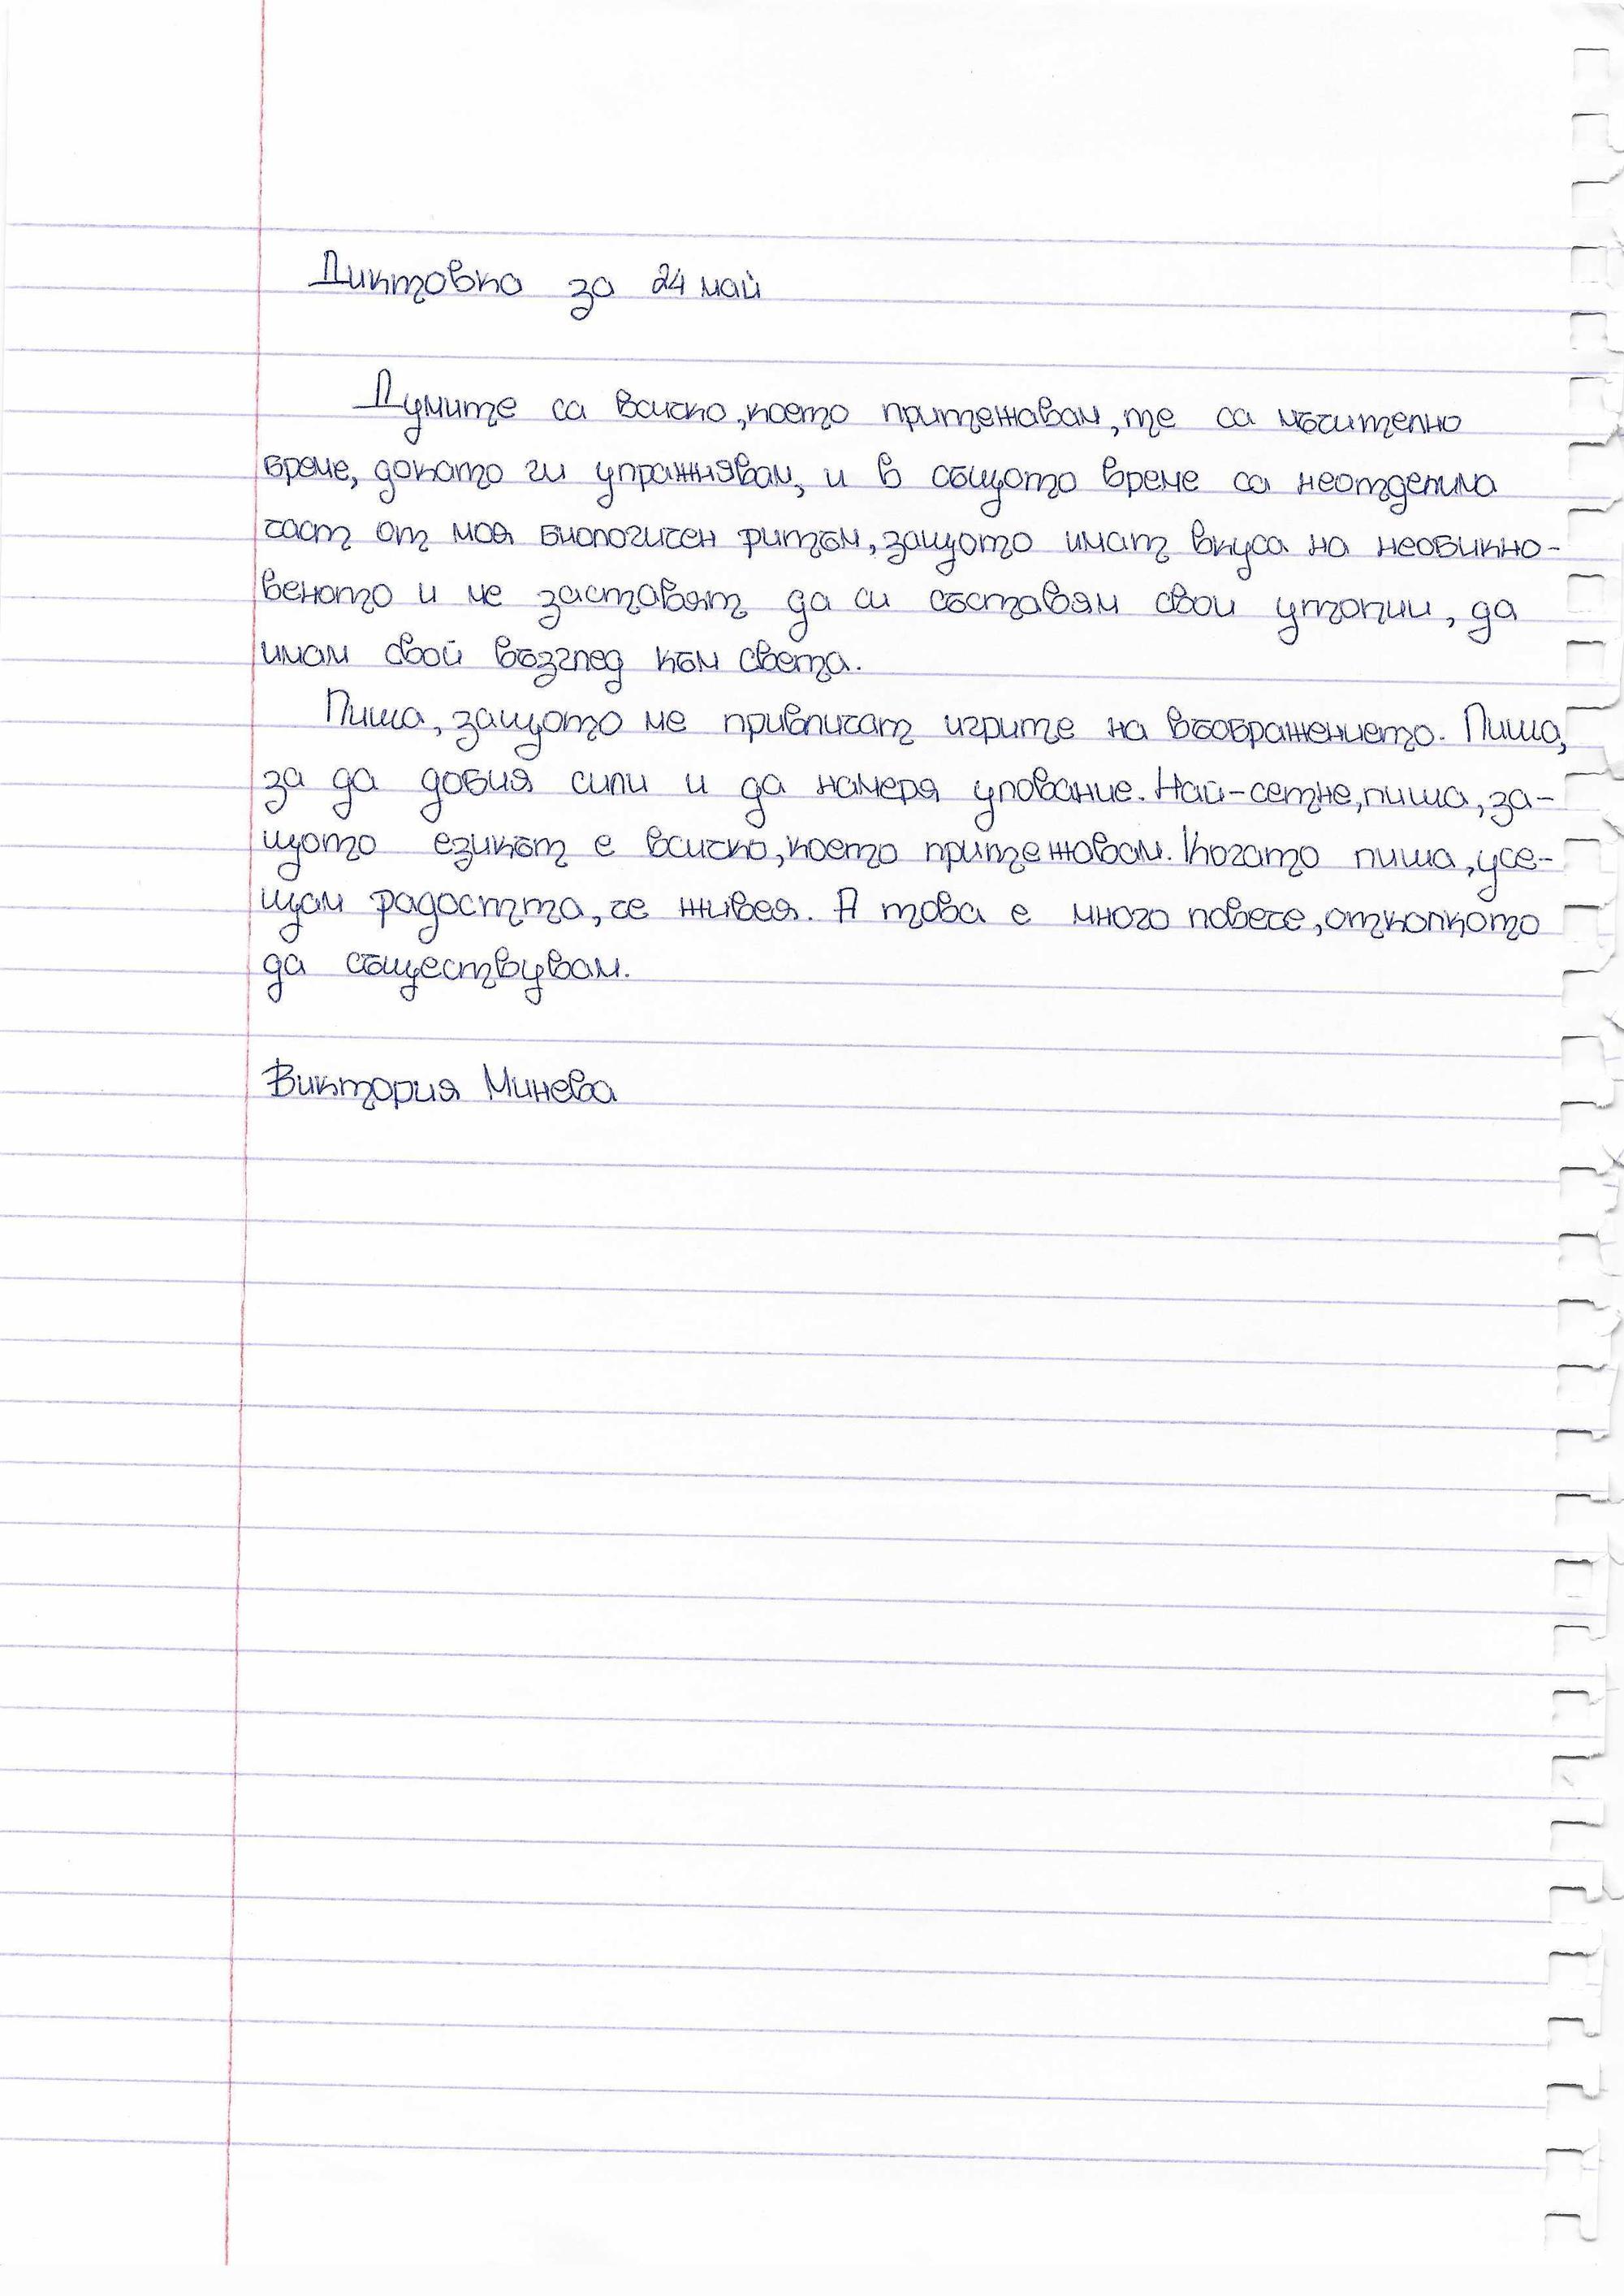 Диктовка за 24 май
Думите са всичко, което притежавам, те са мъчително
бреме, докато ги упражнявам, и в същото време са неотделима
част от моя биологичен ритъм, защото имат вкуса на необикно-
веното и ме заставят да си съставям свои утопии, да
имам свой възглед към света.
Пиша, защото ме привличат игрите на въображението. Пиша,
за да добия сили и да намеря упование. Най-сетне, пиша, за-
щото езикът е всичко, което притежавам. Когато пиша, усе-
щам радостта, че живея. А това е много повече, отколкото
да съществувам.
Виктория Минева